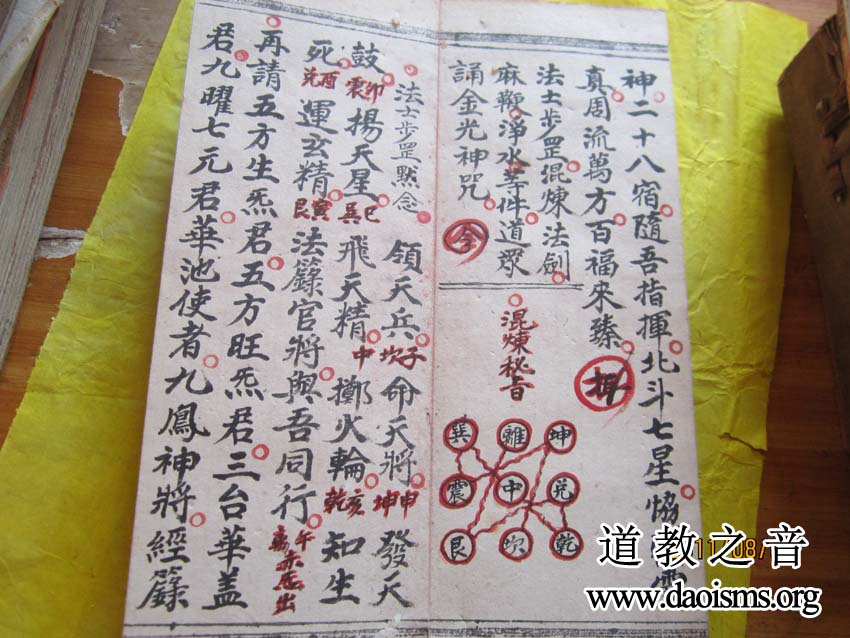 神二十八宿隨吾指揮北斗七星恊
真周流萬方百福來臻
法士步罡混煉法劍
麻鞭淨水等件道眾
誦金光神咒 令
混煉秘旨
巽 離 坤
震 中 兌
艮 坎 乾
法士步罡默念
領天兵 坎子 命天將 坤申 發天
鼓 震卯 揚天星 巽巳 飛天精 中 擲火輪 乾亥 知生
死 兌酉 運玄精 艮寅 法籙官將與吾同行 離午 出
再請五方生炁君五方旺炁君三台華蓋
君九曜七元君華池使者九鳳神將經籙
道教之音
www.daoisms.org